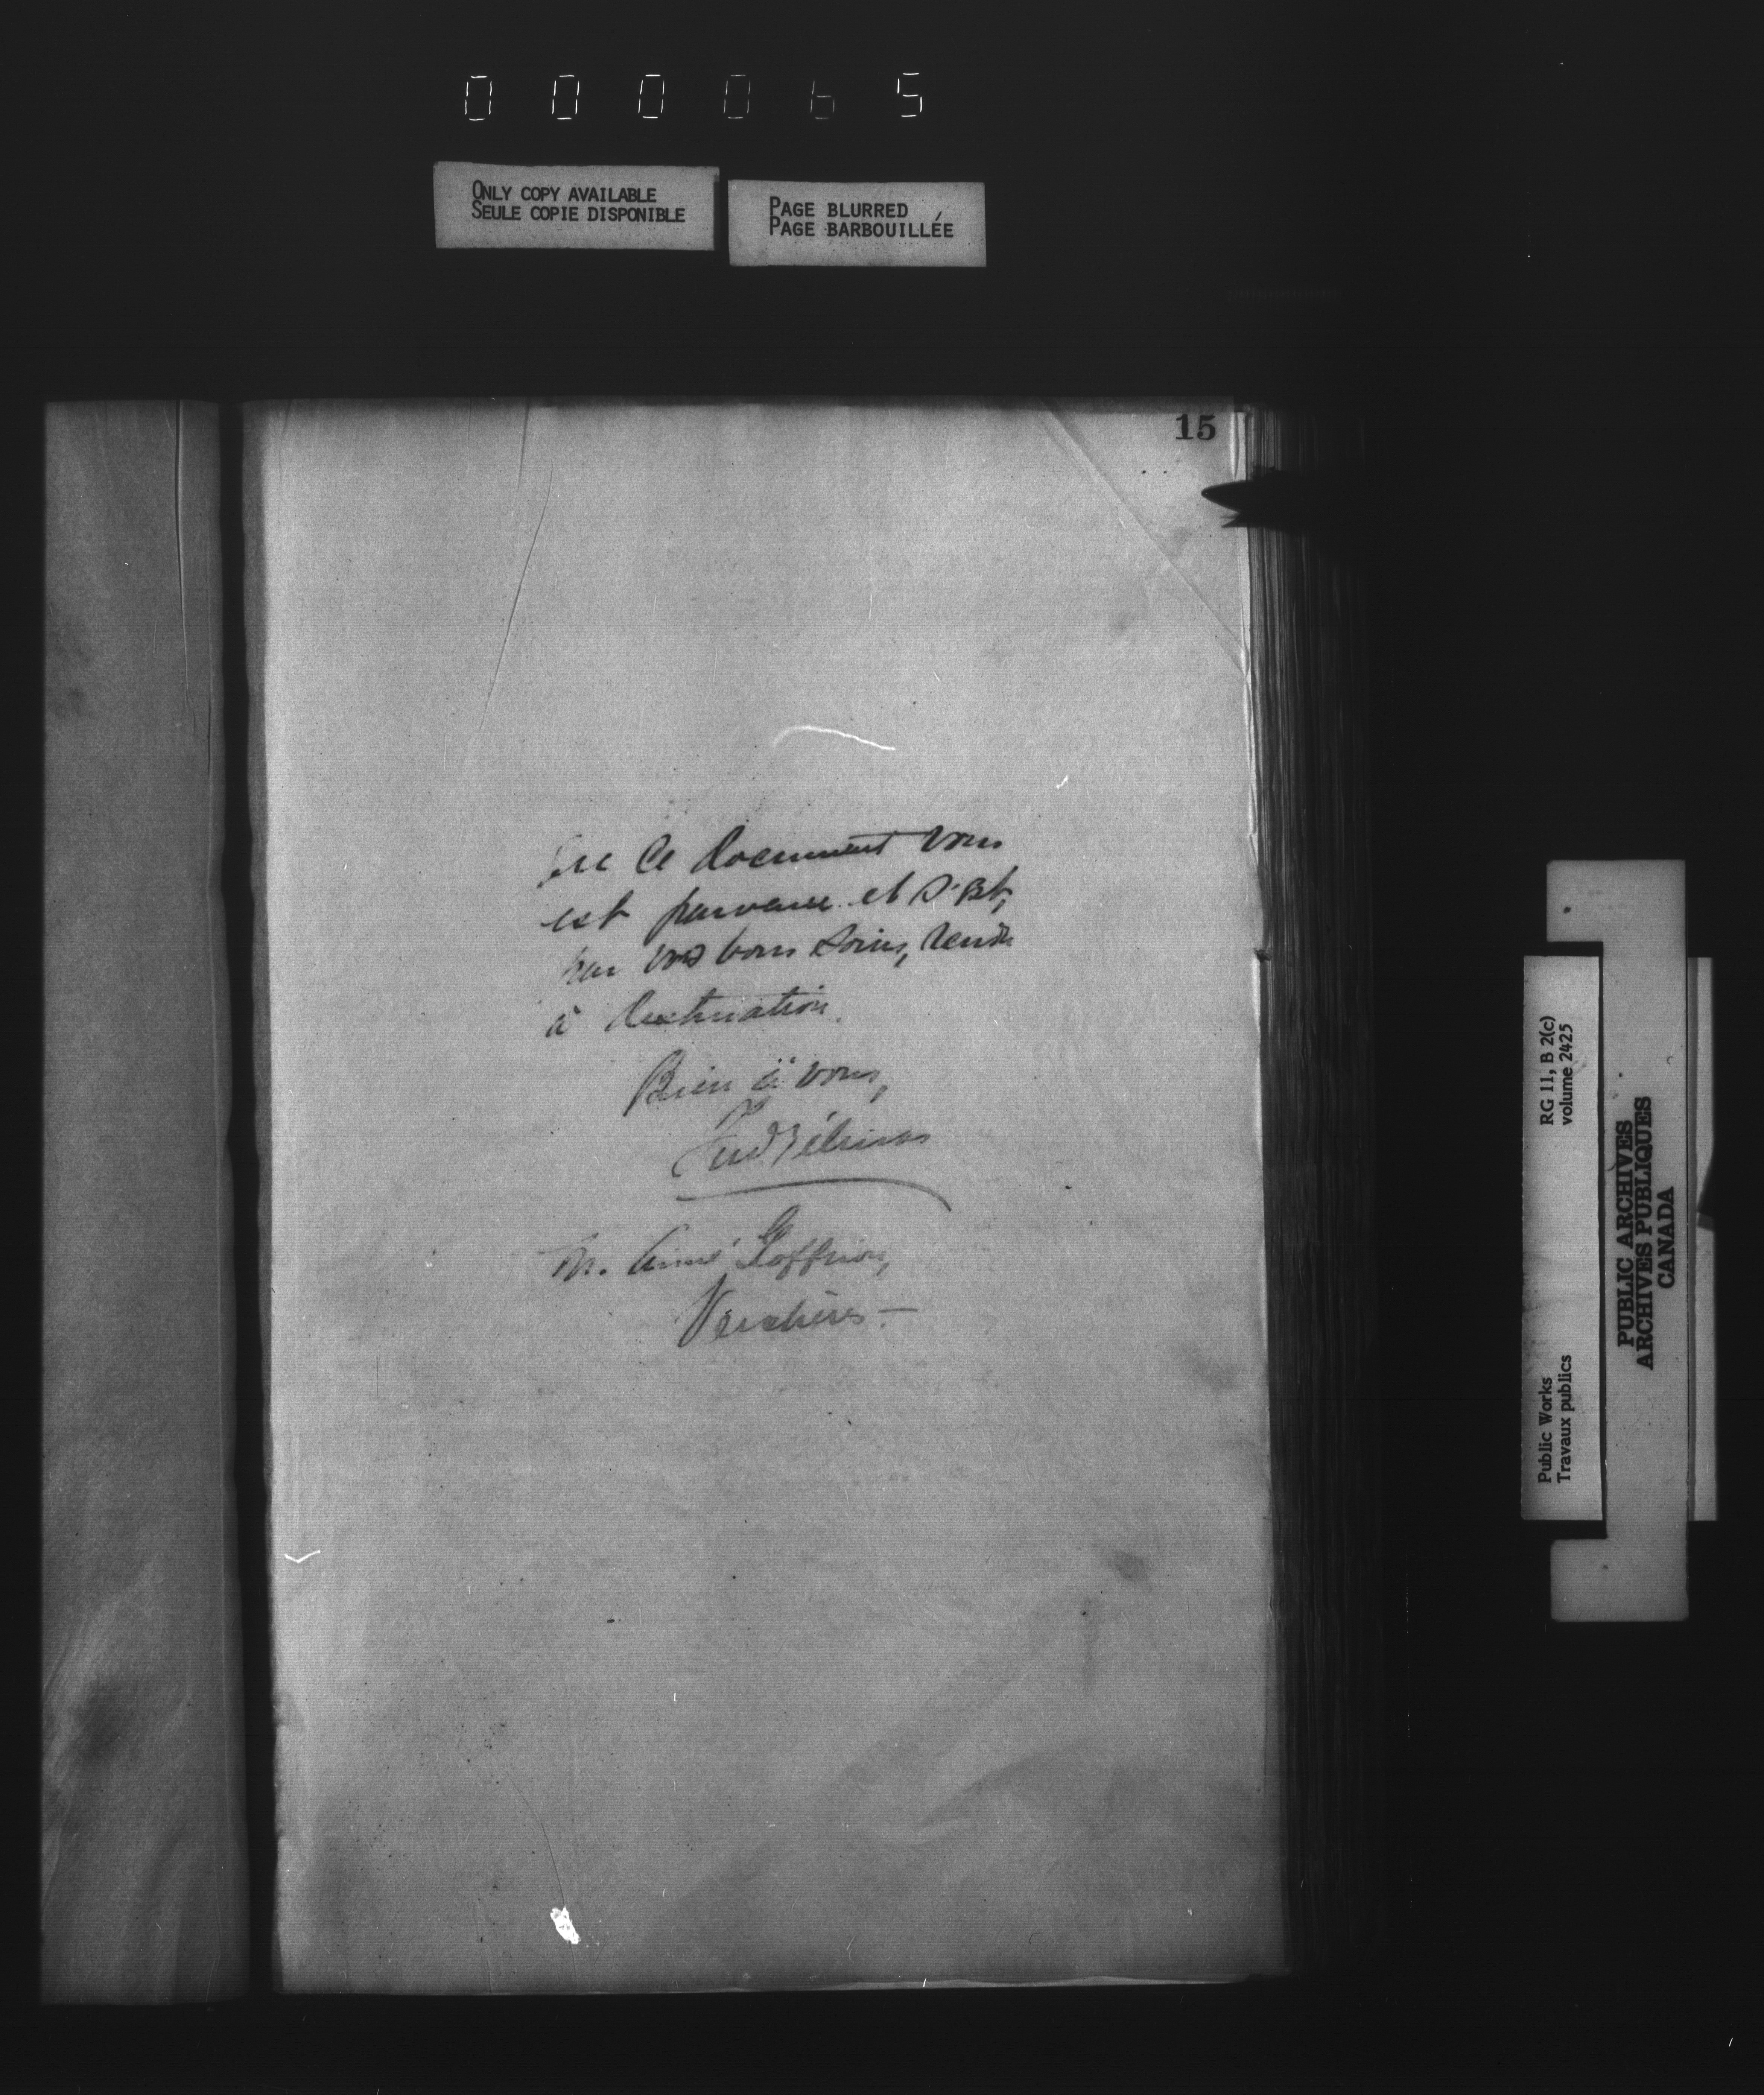 0 0 0 0 6 5
ONLY COPY AVAILABLE
SEULE COPIE DISPONIBLE
PAGE BLURRED
PAGE BARBOUILLÉE
15
ce document vous
est parvenu et s'est,
par vos bons soins, rendu
à destination.
Bien à vous,
M. Aimé Goffrion,
Verchères —
RG 11, B 2(c)
volume 2425
Public Works
Travaux publics
PUBLIC ARCHIVES
ARCHIVES PUBLIQUES
CANADA